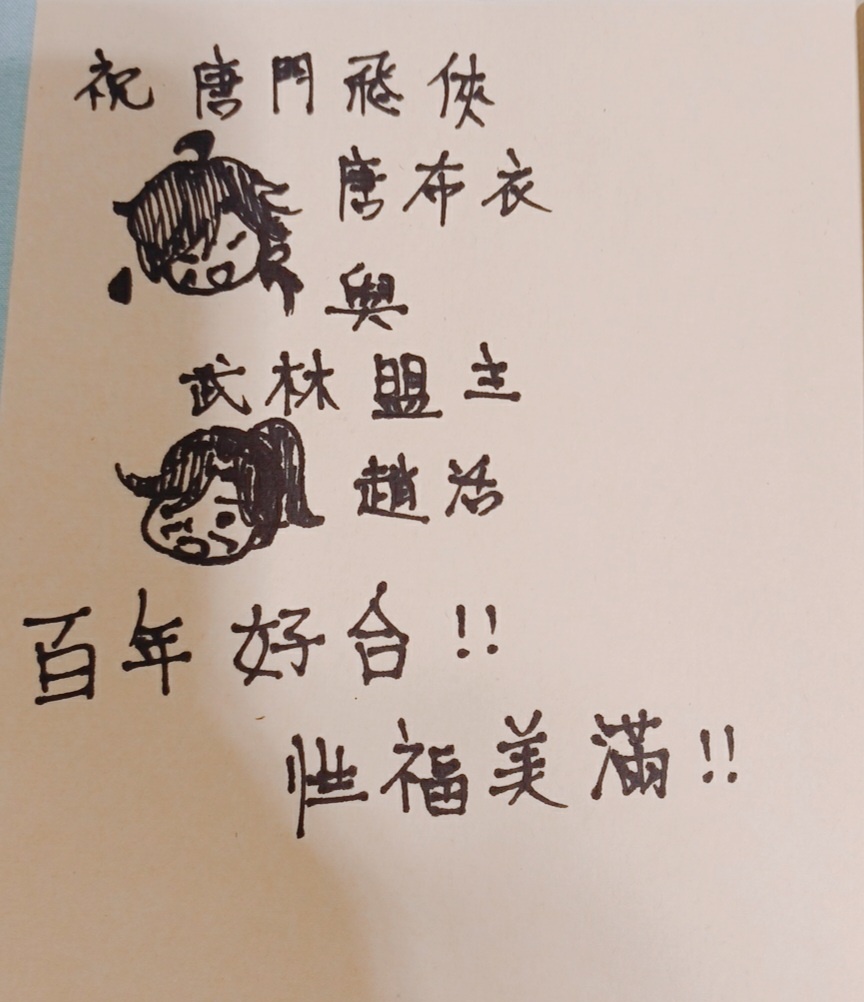 祝唐門飛俠
唐布衣
與
武林盟主
趙活
百年好合!!
性福美滿!!